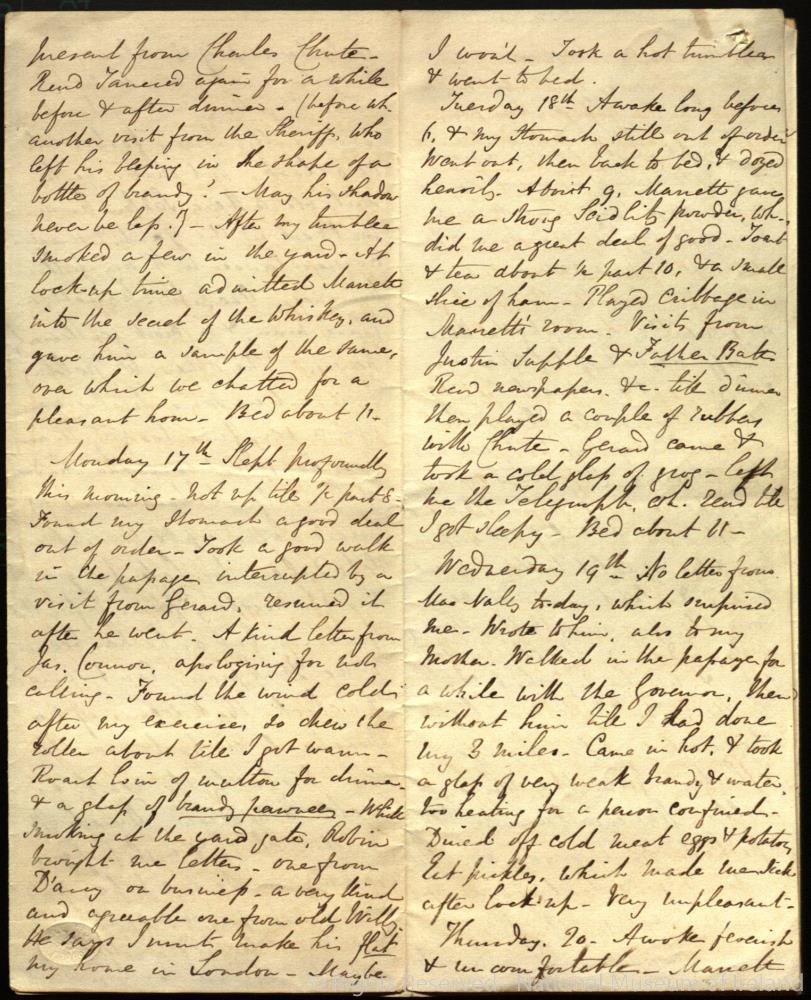 present from Charles Chute -
Read Tancred again for a while
before & after dinner - (before wh.
another visit from the Sheriff, who
left his blessing in the shape of a
bottle of brandy! - May his shadow
never be less!) - After my tumbler
smoked a few in the yard - At
lock-up time admitted Manett
into the secret of the whiskey, and
gave him a sample of the same,
over which we chatted for a
pleasant hour - Bed about 11 -
Monday 17th Slept profoundly
this morning - not up till ½ past 8 -
Found my stomach a good deal
out of order - Took a good walk
in the passage, interrupted by a
visit from Gerard, resumed it
after he went. A kind letter from
Jas. Connor, apologising for not
calling - Found the wind cold
after my exercise, so drew the
roller about till I got warm -
Roast loin of mutton for dinner
& a glass of brandy pawnee - While
smoking at the yard gate, Robin
brought me letters - one from
D'arcy on business - a very kind
and agreeable one from old Willy
He says I must make his flat
my home in London - Maybe
I won't - Took a hot tumbler
& went to bed.
Tuesday 18th Awake long before
6, & my stomach still out of order
Went out, then back to bed, & dozed
heavily. About 9, Manett gave
me a strong Seidlitz powder, wh.
did me a great deal of good - Toast
& tea about ½ past 10, & a small
slice of ham - Played Cribbage in
Manett's room. Visits from
Justin Supple & Father Batt
Read newspapers. &c. till dinner
then played a couple of rubbers
with Chute - Gerard came &
took a cold glass of grog - left
me the Telegraph, wh. read till
I got sleepy - Bed about 11 -
Wednesday 19th No letter from
Mac Nally today, which surprised
me - Wrote to him, also to my
Mother. Walked in the passage for
a while with the Governor, then
without him till I had done
my 3 miles - Came in hot, & took
a glass of very weak brandy & water,
too heating for a person confined -
Dined off cold meat eggs & potatoes
Eat pickles, which made me sick
after lock up - Very unpleasant -
Thursday. 20 - Awoke feverish
& uncomfortable - Manett
Rights Reserved - National Museum of Ireland